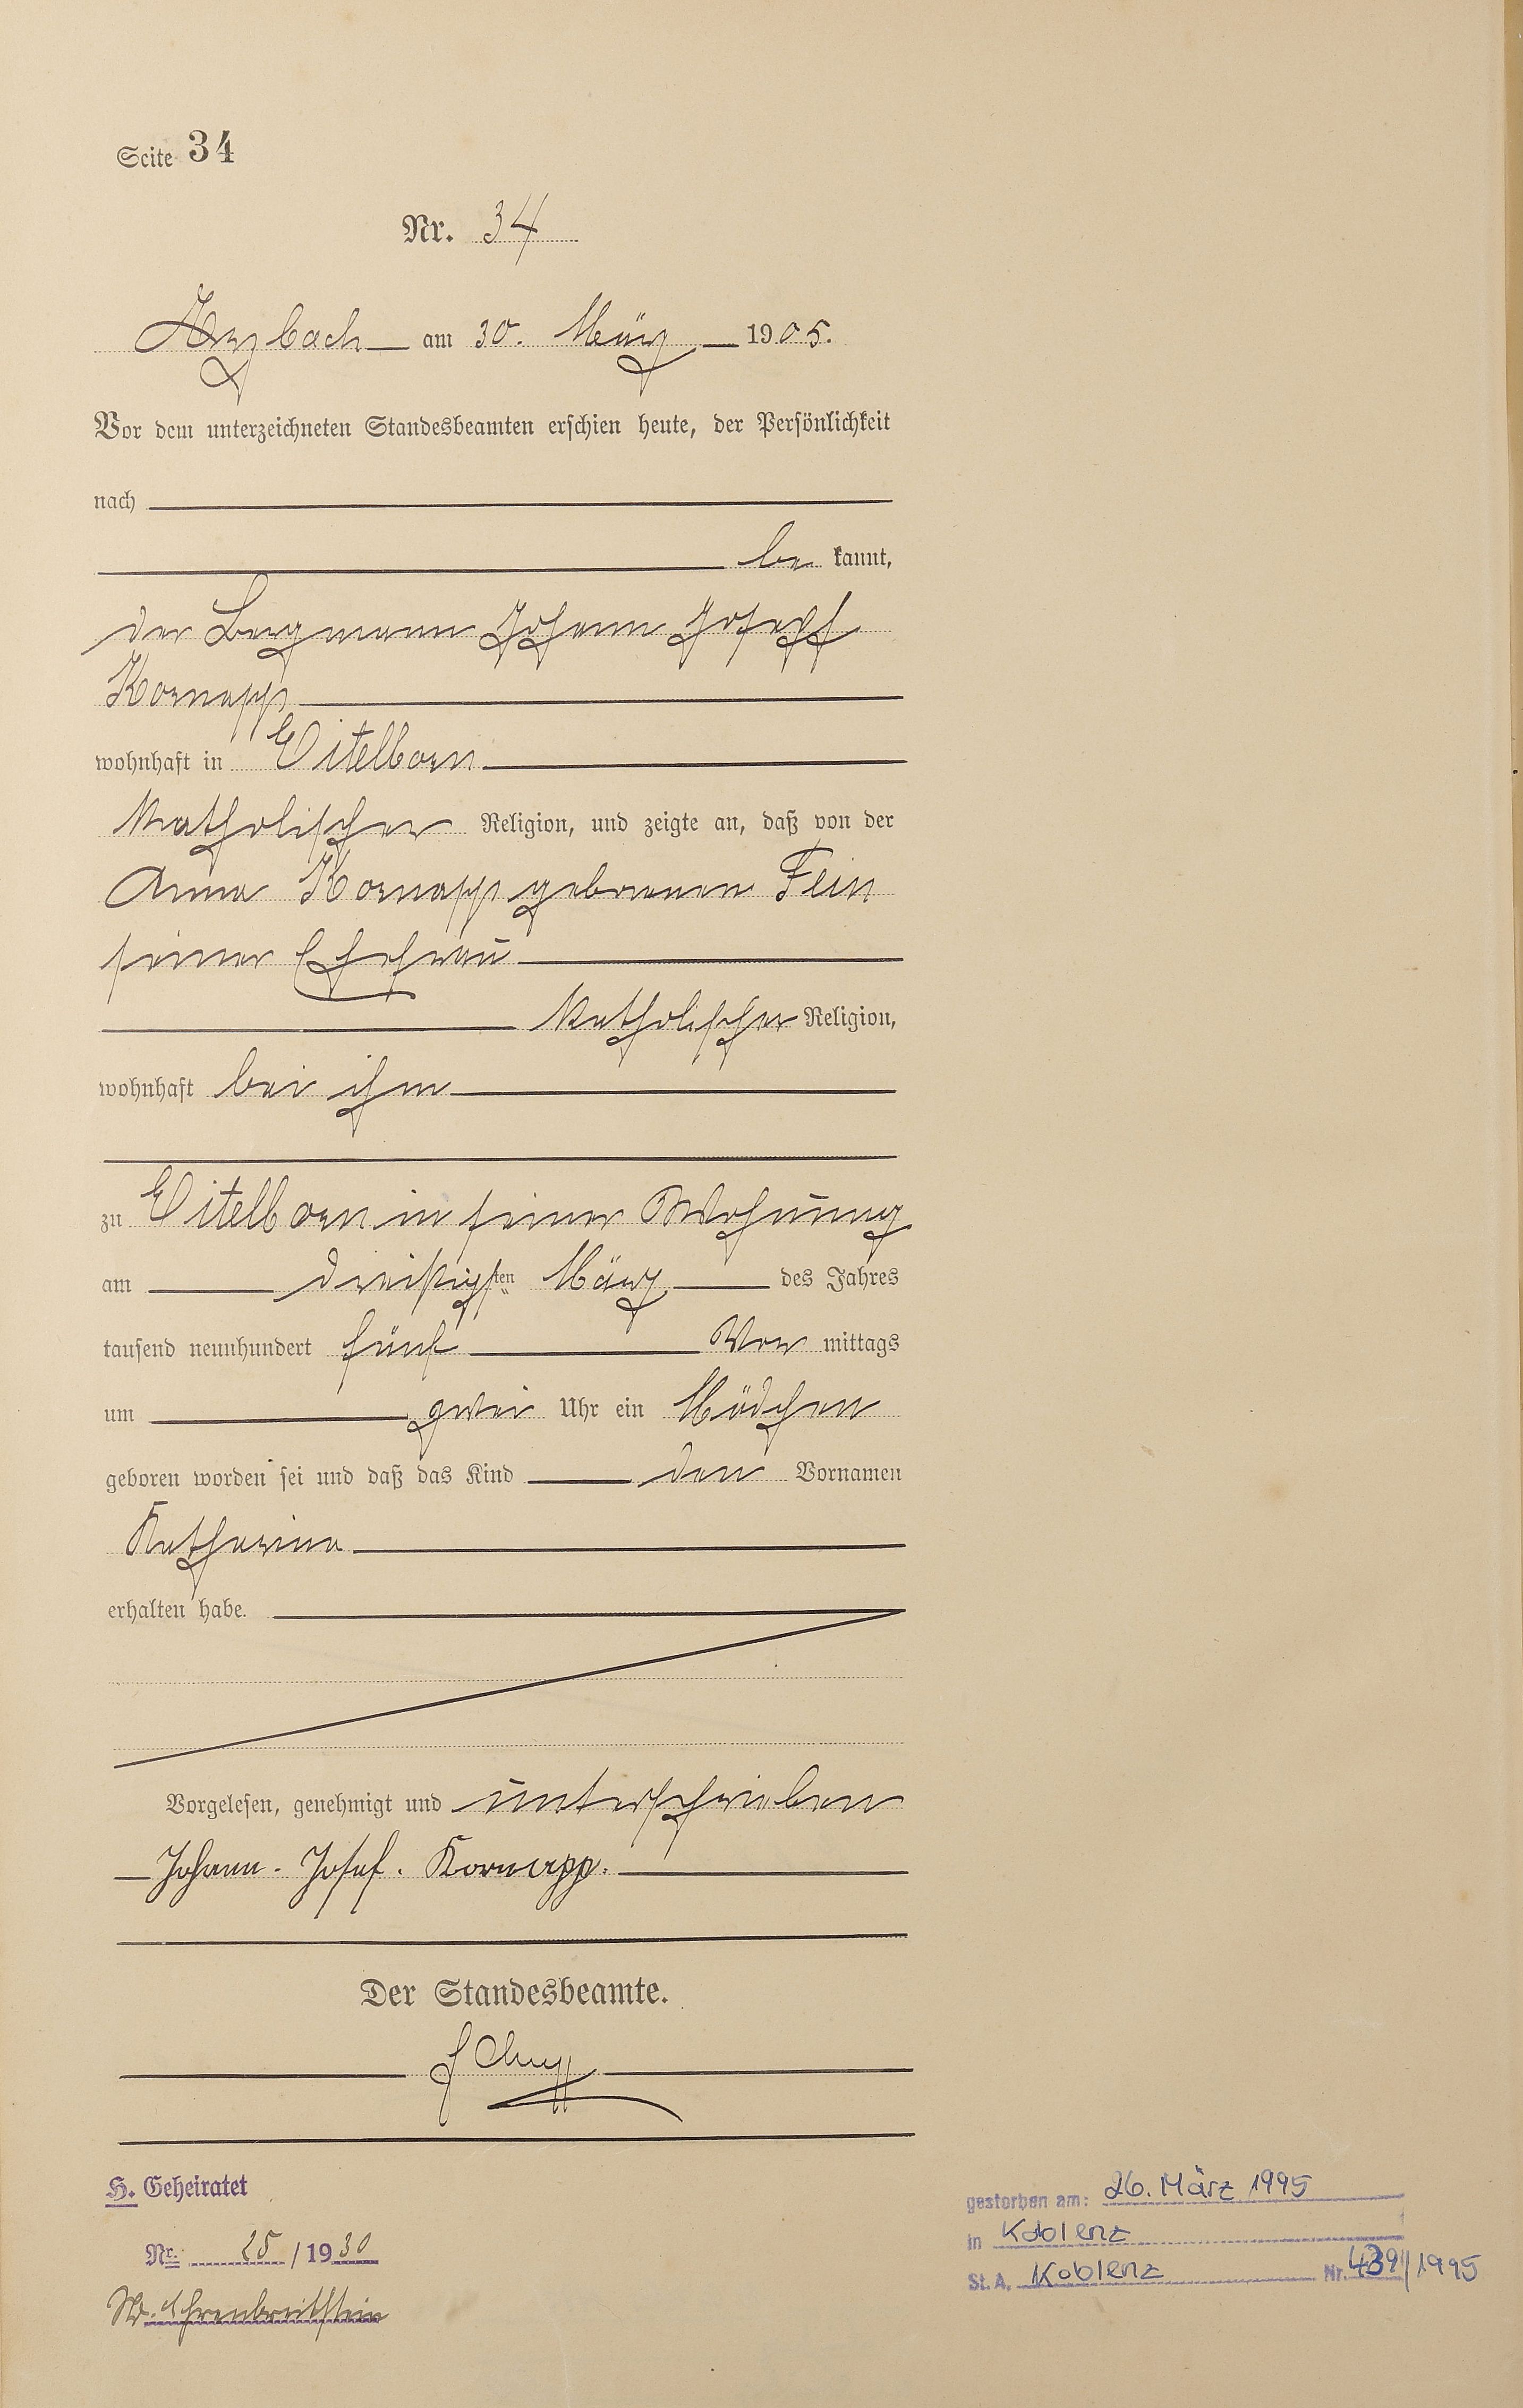 Seite 34
Nr. 34
Arzbach am 30. März 1905.
Vor dem unterzeichneten Standesbeamten erschien heute, der Persönlichkeit
nach
be kannt,
der Bergmann Johann Joseph
Kornapp
wohnhaft in Eitelborn
katholischer Religion, und zeigte an, daß von der
Anna Kornapp geborenen Fein
seiner Ehefrau
katholischer Religion,
wohnhaft bei ihm
zu Eitelborn in seiner Wohnung
am dreißigsten März des Jahres
tausend neunhundert fünf Vor mittags
um zwei Uhr ein Mädchen
geboren worden sei und daß das Kind den Vornamen
Katharina
erhalten habe.
Vorgelesen, genehmigt und unterschrieben
Johann. Josef. Kornapp.
Der Standesbeamte.
H. Geheiratet
Nr. 25 / 1930
Ehrenbreitstein
gestorben am: 26. März 1995
in Koblenz
St. A. Koblenz Nr. 439/1995